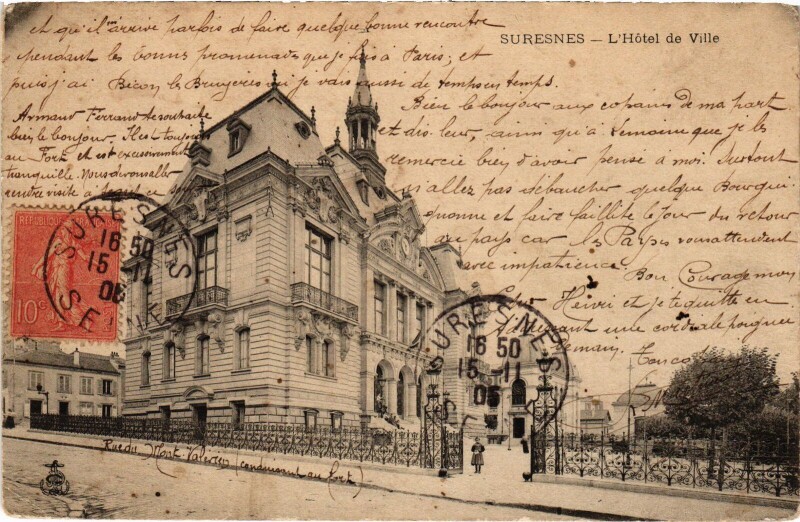 et qu'il m'arrive parfois de faire quelque bonne rencontre
SURESNES — L'Hôtel de Ville
pendant les bonnes promenades que je fais à Paris; et
puis j'ai Bécon les Bruyères où je vais aussi de temps en temps.
Bien le bonjour aux copains de ma part
et dis-leur, ainsi qu'à Lemoine que je les
remercie bien d'avoir pensé à moi. Surtout
n'allez pas débaucher quelque Bourgui-
gnonne et faire faillite le jour du retour
au pays car les Payses vous attendent
avec impatience.
Bon Courage mon
cher Henri et je te quitte en
te donnant une cordiale poignée
de main. Ton
Armand Ferrand te souhaite
bien le bonjour. Il est toujours
au Fort et est excessivement
tranquille. Nous devons aller
rendre visite à
REPUBLIQUE
10c
SURESNES
16 50
15 11
05
SEINE
SURESNES
16 50
15 11
05
Rue du Mont-Valérien (conduisant au fort)